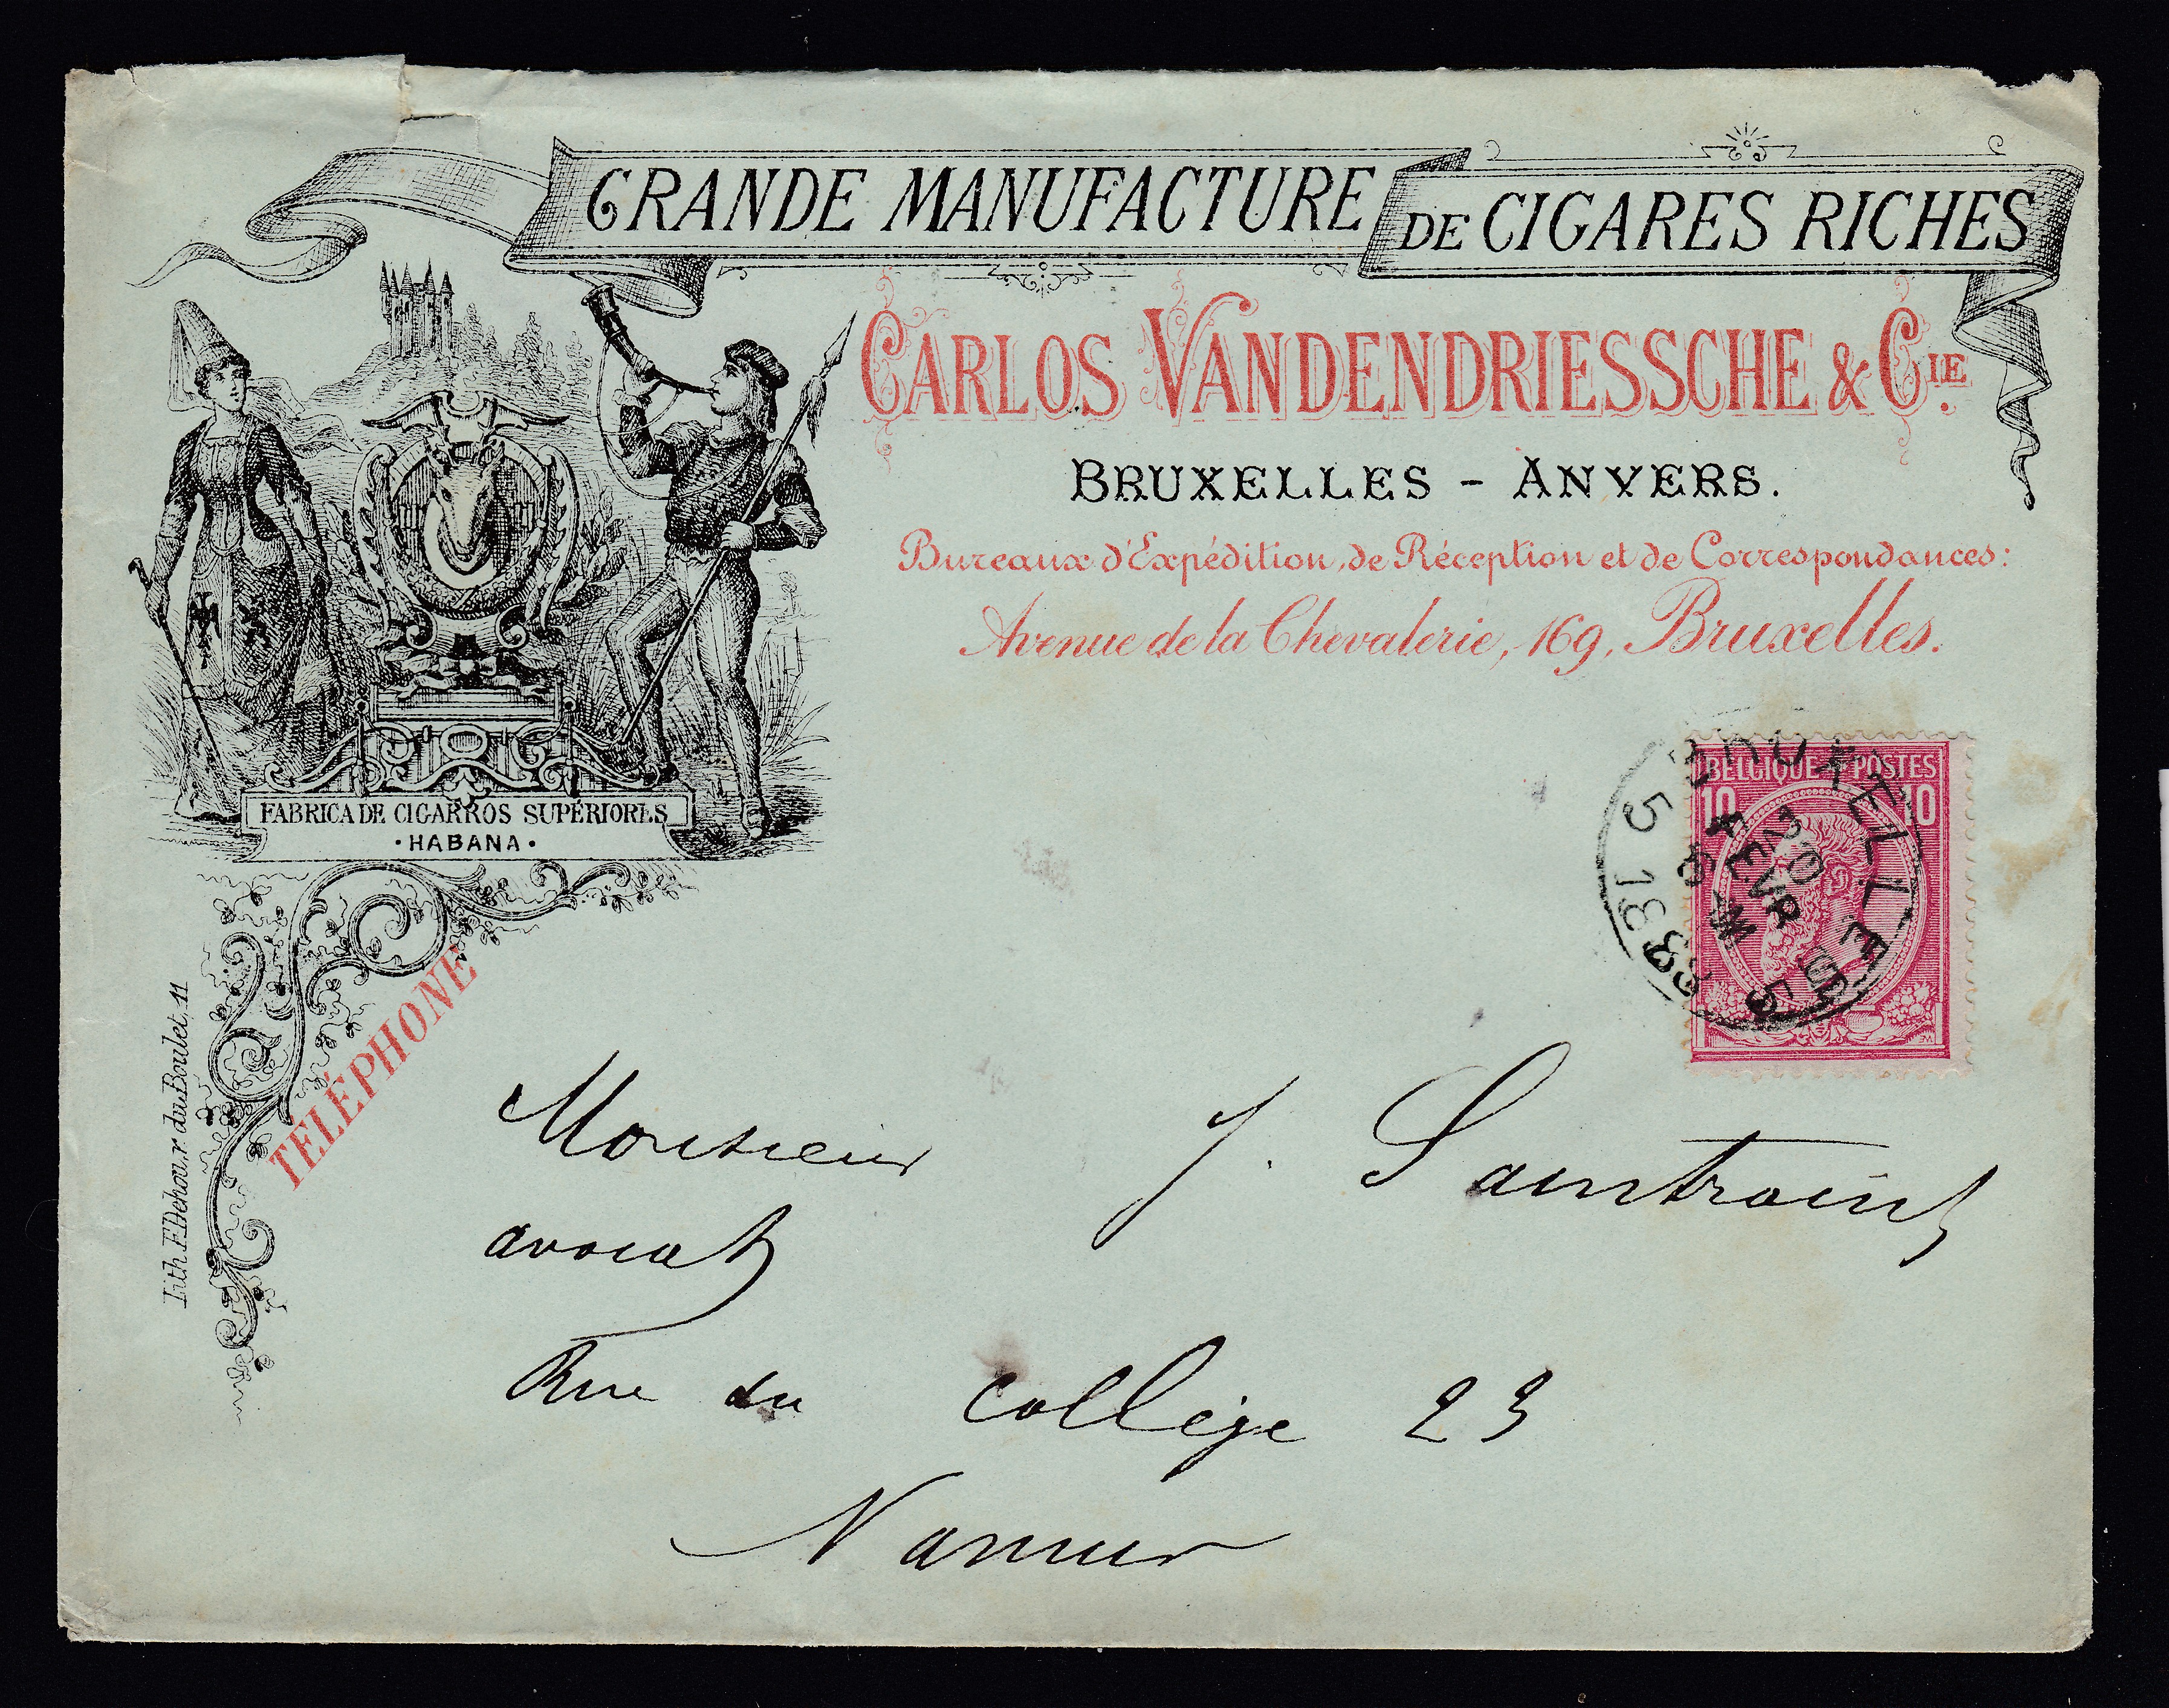 GRANDE MANUFACTURE DE CIGARES RICHES
CARLOS VANDENDRIESSCHE & CIE.
BRUXELLES - ANVERS.
Bureaux d'Expédition, de Réception et de Correspondances:
Avenue de la Chevalerie, 169, Bruxelles.
FABRICA DE CIGARROS SUPERIORES
· HABANA ·
TÉLÉPHONE
Lith. E. Dehou, r. du Boulet, 11
BELGIQUE POSTES
10 10
BRUXELLES 5
FEVR
Monsieur J. Saintraint
avocat
Rue du Collège 23
Namur